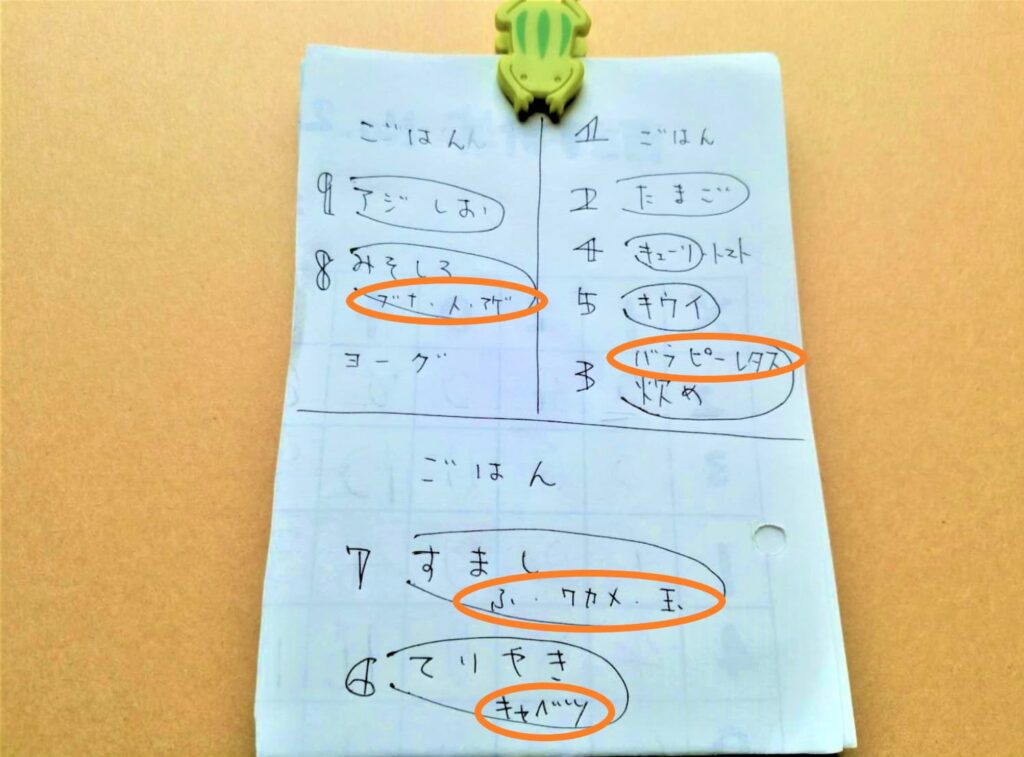 ごはん
9 アジ しお
8 みそしる
ブナ・人・アゲ
ヨーグ
1 ごはん
2 たまご
4 キューリ・トマト
5 キウイ
バラ ピーレタス
3 炊め
ごはん
7 すまし
ふ・ワカメ・玉
6 てりやき
キャベツ